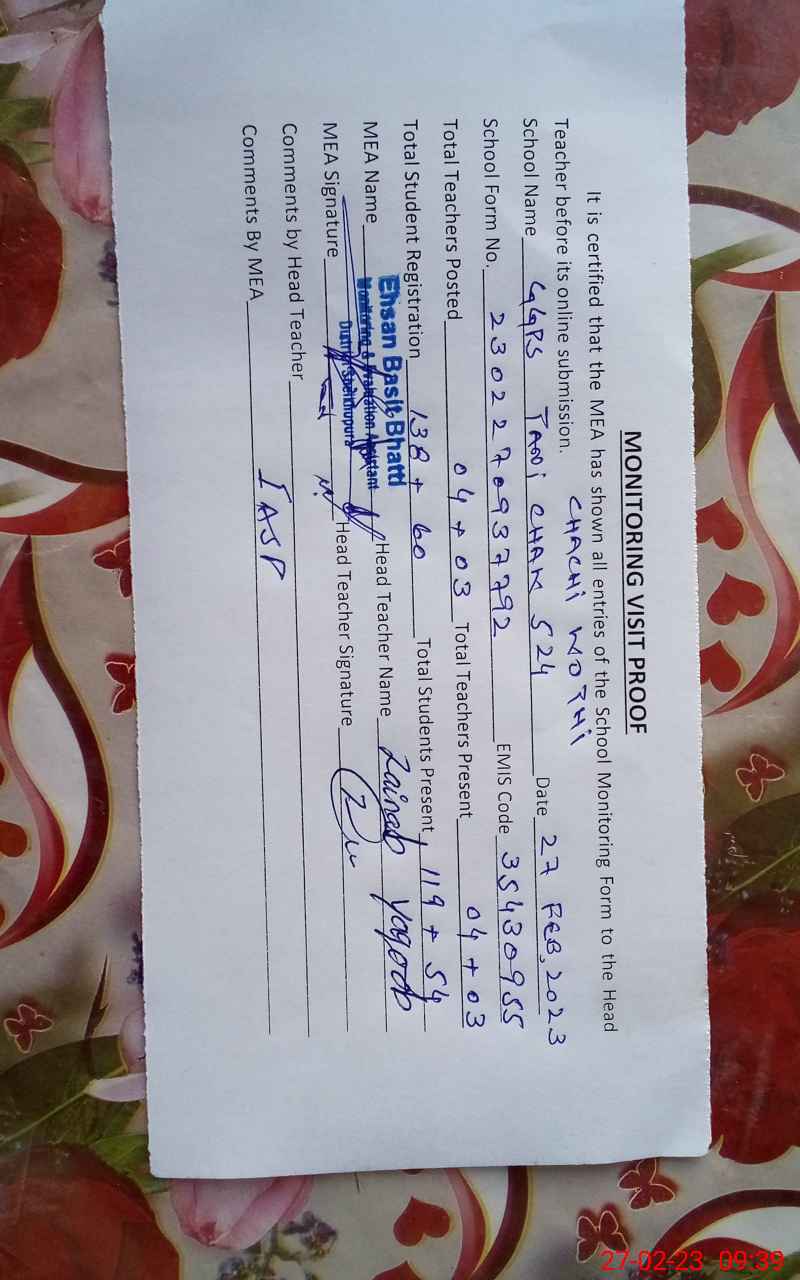 MONITORING VISIT PROOF
It is certified that the MEA has shown all entries of the School Monitoring Form to the Head
Teacher before its online submission.
CHACHI WOTHI
School Name GGPS CHAK 524 Date 27 FEB, 2023
School Form No. 2302270937792 EMIS Code 35430955
Total Teachers Posted 04 + 03 Total Teachers Present 04 + 03
Total Student Registration 138 + 60 Total Students Present 119 + 54
MEA Name Ehsan Basit Bhatti Head Teacher Name Zainab Yaqoob
Monitoring & Evaluation Assistant
District Sheikhupura
MEA Signature Head Teacher Signature
Comments by Head Teacher
Comments By MEA IASP
27-02-23 09:39